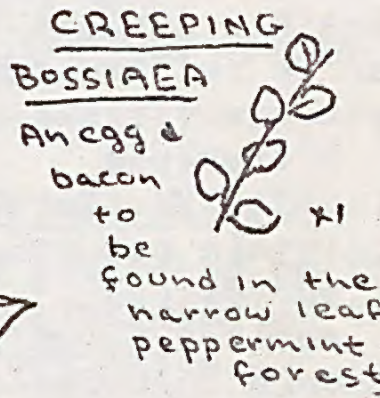 CREEPING
BOSSIAEA
An egg &
bacon
to x1
be
found in the
narrow leaf
peppermint
forest